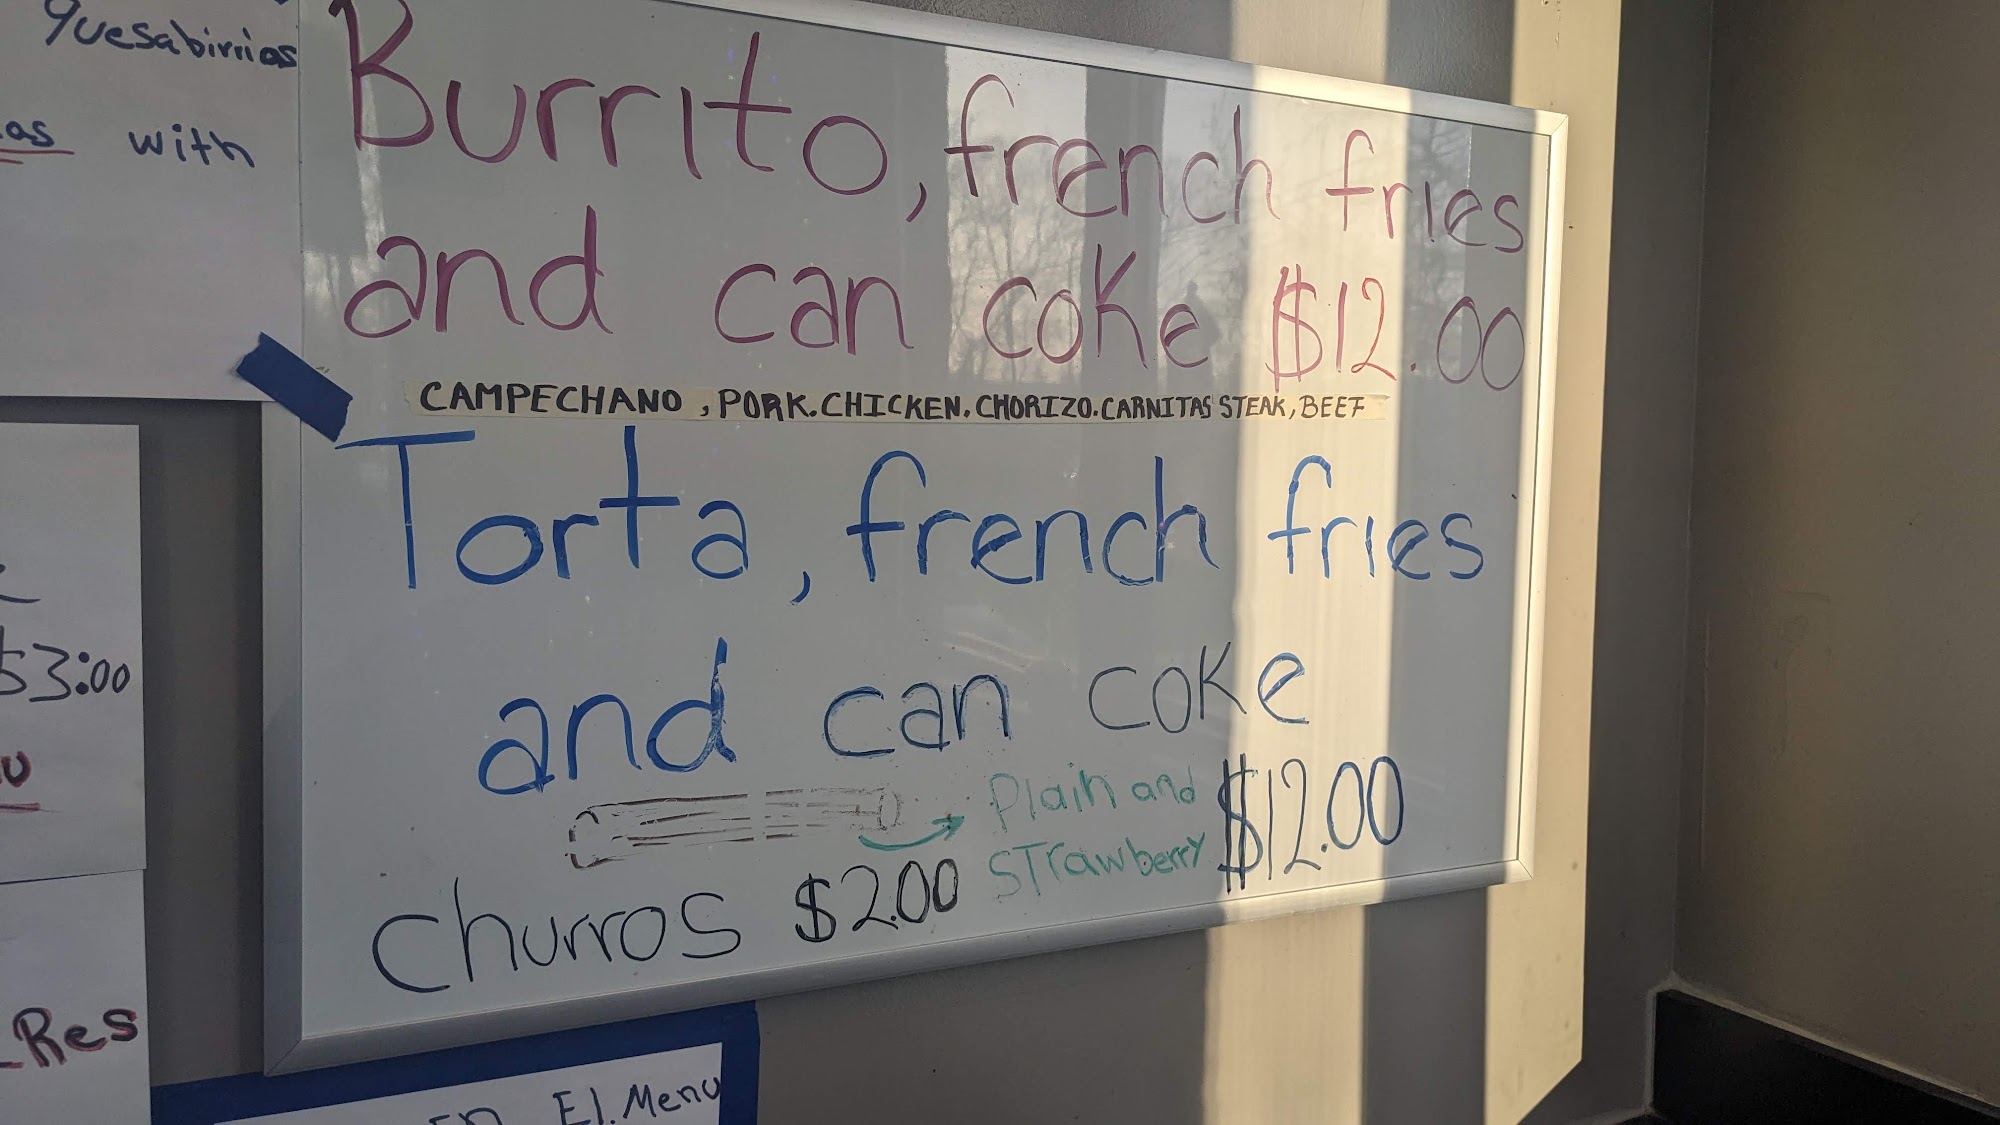 quesabirrias
as with
Burrito, french fries
and can coke $12.00
CAMPECHANO, PORK. CHICKEN. CHORIZO. CARNITAS STEAK, BEEF
Torta, french fries
and can coke
$12.00
Plain and
Strawberry
Churros $2.00
$3:00
Res
El. Menu